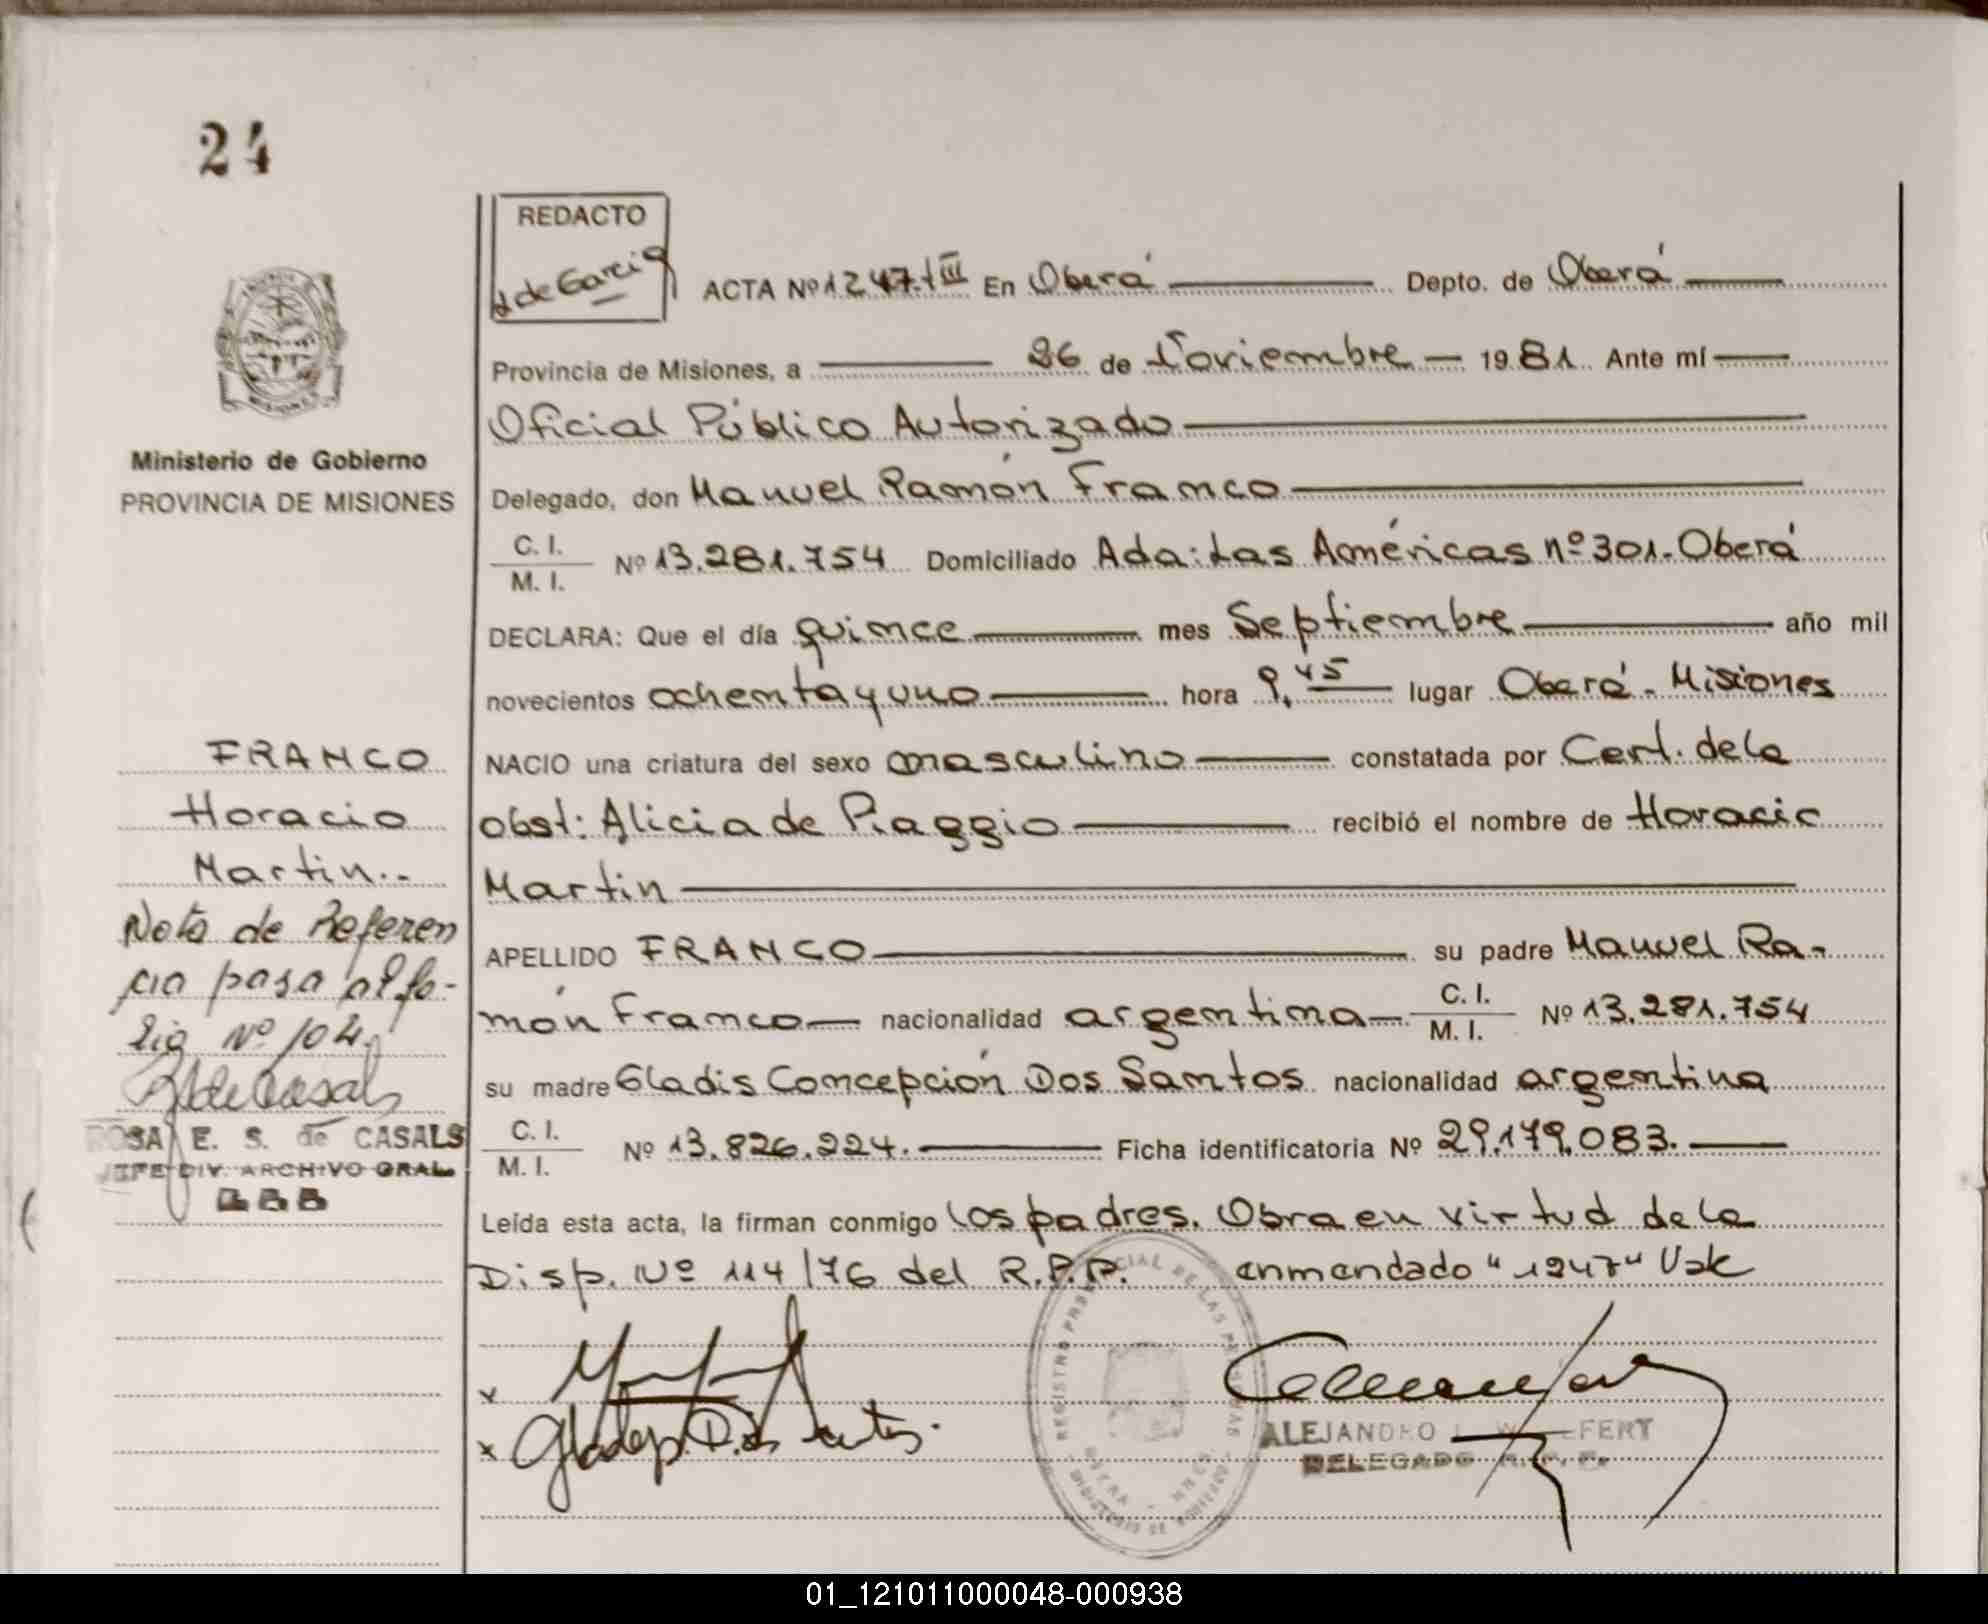 24
REDACTO
de Garcia
ACTA Nº 1247.tIII En Oberá Depto. de Oberá
Provincia de Misiones, a 26 de Noviembre 1981. Ante mí
Oficial Público Autorizado
Ministerio de Gobierno
PROVINCIA DE MISIONES
Delegado, don Manuel Ramón Franco
C. I.
M. I.
Nº 13.281.754 Domiciliado Ada: Las Américas nº 301.-Oberá
DECLARA: Que el día quince mes Septiembre año mil
novecientos ochenta y uno hora 9,45 lugar Oberá.- Misiones
NACIO una criatura del sexo masculino constatada por Cert. de la
obst: Alicia de Piaggio recibió el nombre de Horacio
Martin
APELLIDO FRANCO su padre Manuel Ra-
món Franco nacionalidad argentina C. I. M. I. Nº 13.281.754
su madre Gladis Concepción Dos Santos nacionalidad argentina
C. I.
M. I.
Nº 13.826.224. Ficha identificatoria Nº 29.179.083.
Leída esta acta, la firman conmigo los padres. Obra en virtud de la
Disp. Nº 114/76 del R.P.P. enmendado "1247" Vale
FRANCO
Horacio
Martin.-
Nota de Referen
cia pasa al fo-
lio Nº 104.
R de Casals
ROSA E. S. de CASALS
JEFE DIV. ARCHIVO GRAL.
REGISTRO PROVINCIAL DE LAS PERSONAS
MINISTERIO DE GOBIERNO
OBERA - MNES
ALEJANDRO
DELEGADO R. P. P.
01_121011000048-000938